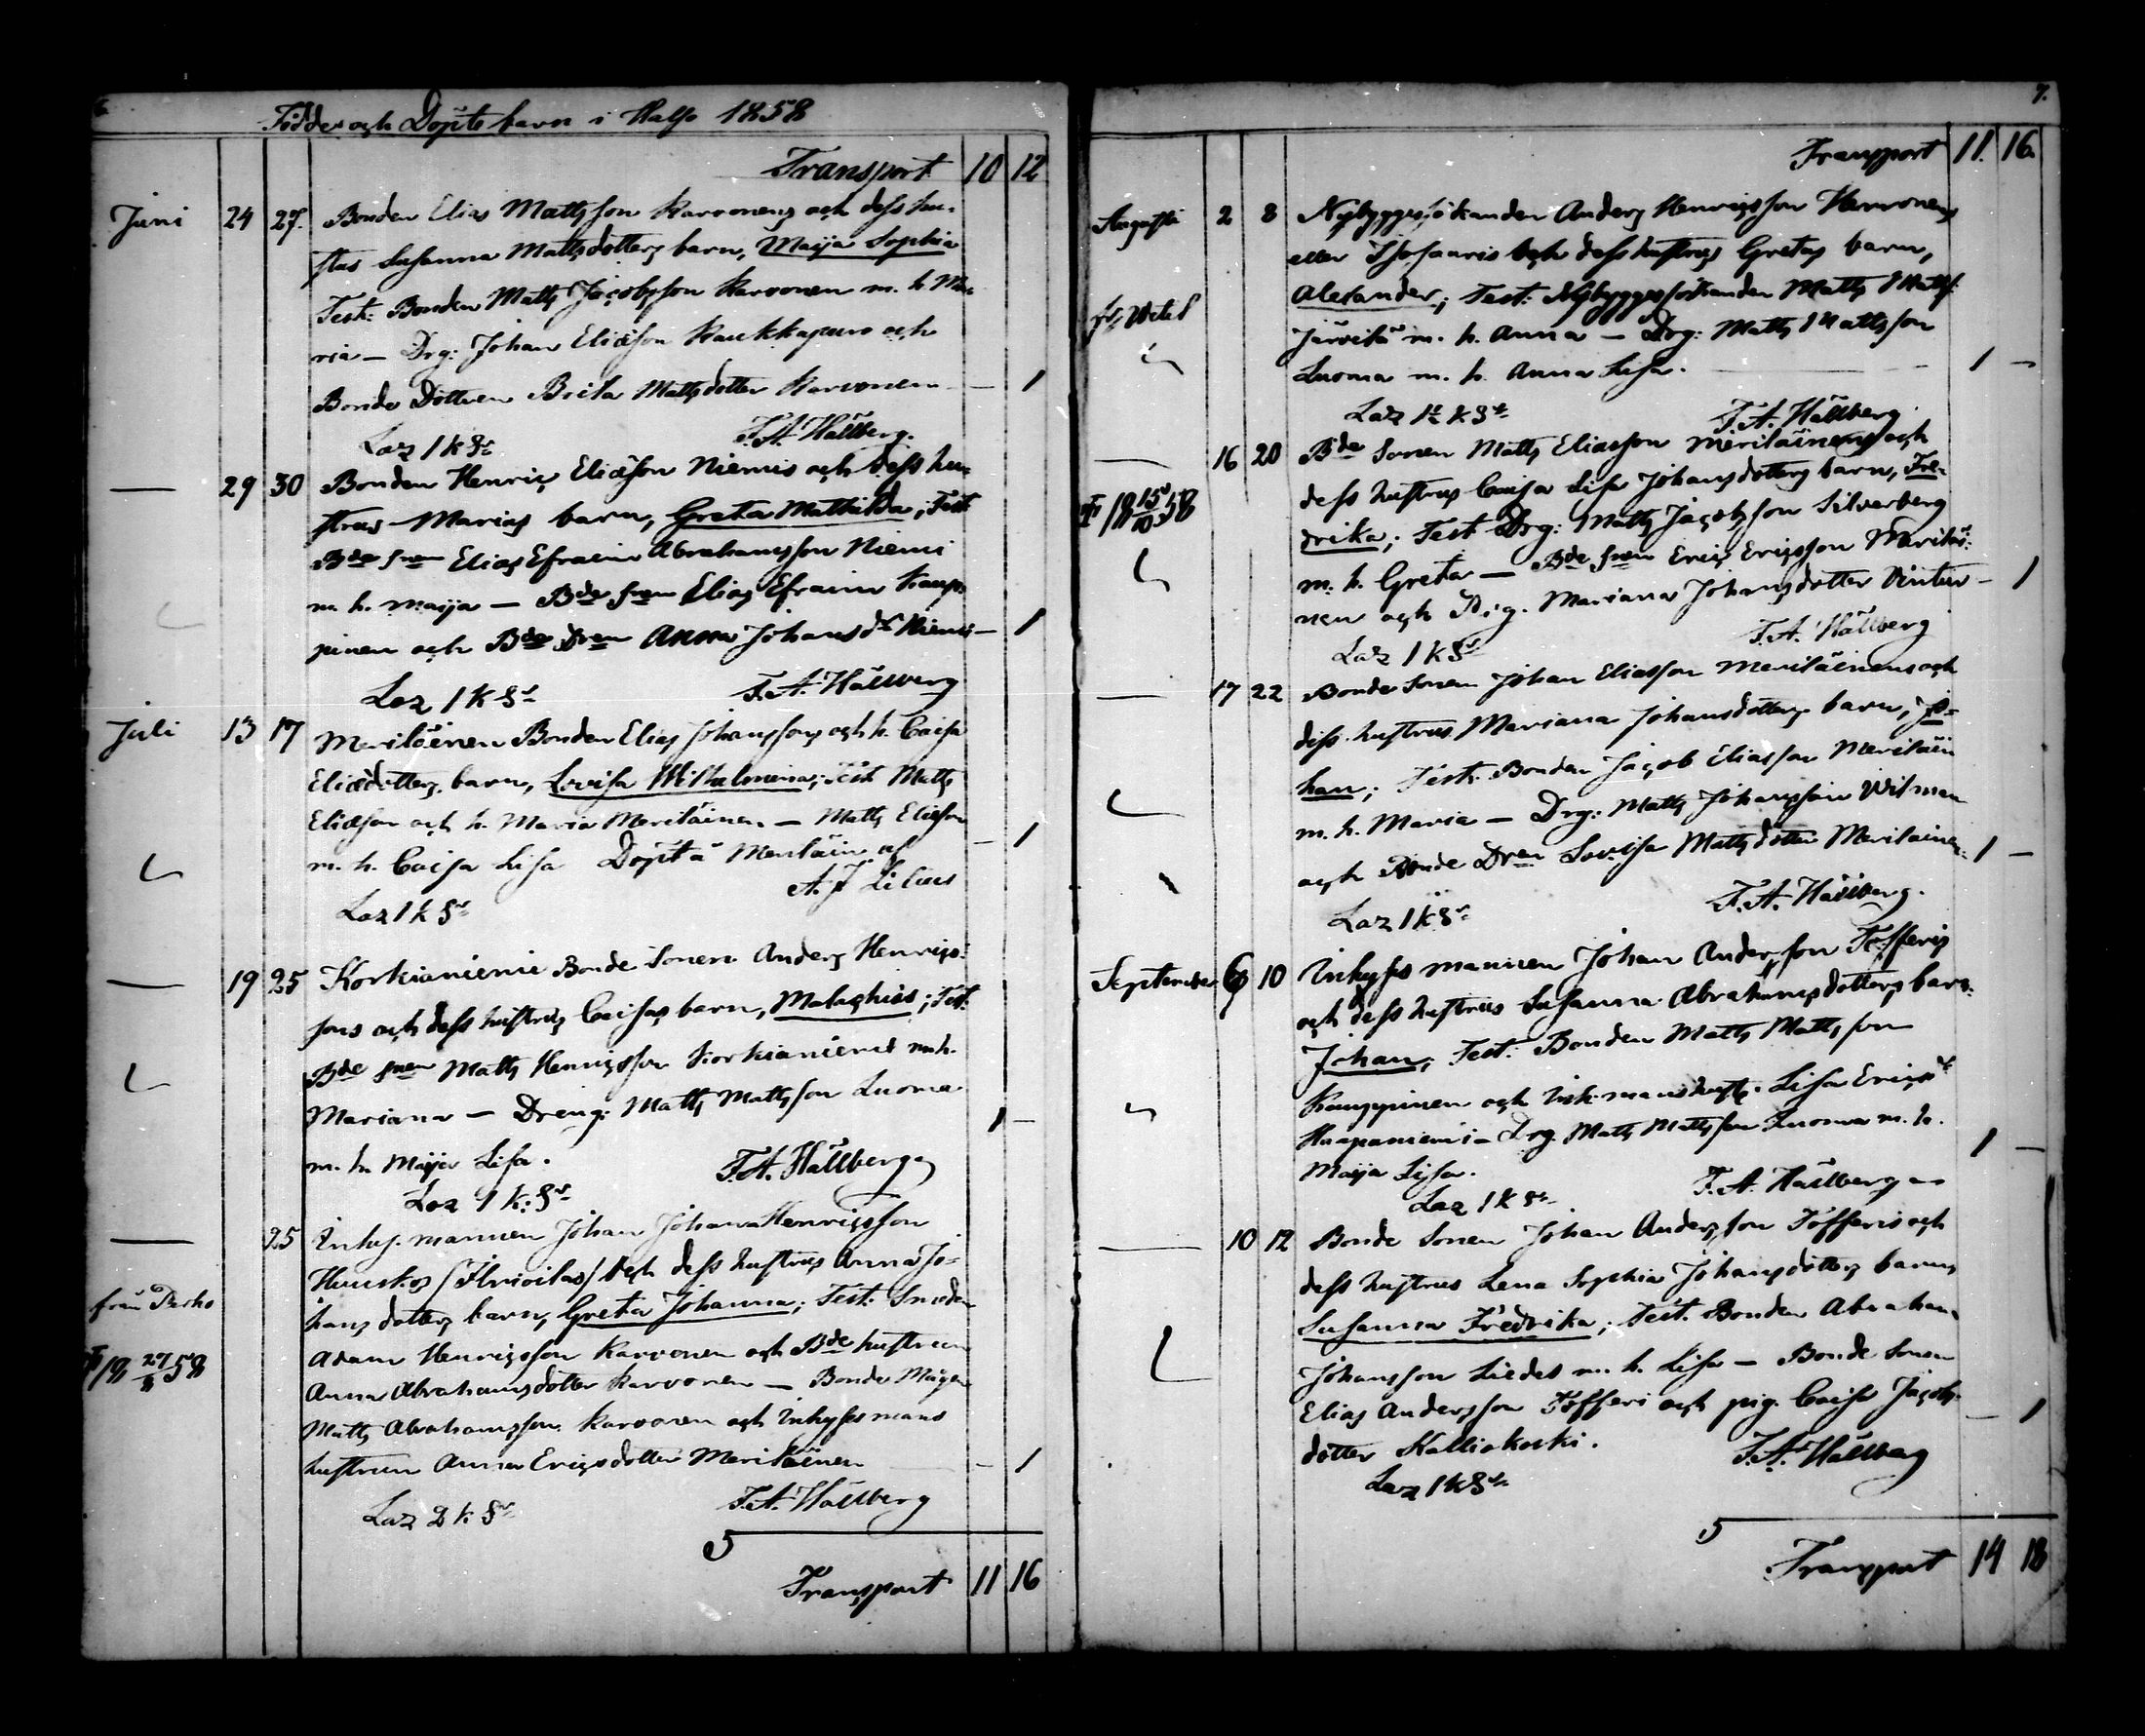 6.
Födde och Döpte barn i Halso 1858
Transport 10 12
Juni 24 27. Bonden Elias Mattsson Karvonens och dess hu-
strus Susanna Mattsdotters barn, Maija Sophia
Test: Bonden Matts Jacobsson Karvonen m. h Ma-
ria — Drg: Johan Eliasson Kaukkapuro och
Bonde Dottren Brita Mattsdotter Karvonen — 1
Laz 1 k Sr
F.A. Hällberg.
— 29 30 Bonden Henric Eliasson Niemis och dess hu-
strus Marias barn, Greta Mathilda; Test
Bde snen Elias Efraim Abrahamsson Niemi
m. h. Maija — Bde snen Elias Efraim Kaup-
pinen och Bde Dren Anna Johansdr Niemi — 1
Laz 1 k Sr
F.A. Hällberg
Juli 13 17 Meriläinen Bonden Elias Johanssons och h. Caisa
Eliædotters barn, Lovisa Wilhelmina; Test Matts
Eliæson och h. Maria Meriläinen — Matts Eliæson
m. h. Caisa Lisa Döpt a Meriläin af — 1
A. J Lilius
Laz 1 k Sr
— 19 25 Korkianiemi Bonde Sonen Anders Henrics-
sons och dess hustrus Caisas barn, Malachias; Test.
Bde snen Matts Henricsson Korkianiemi m.h.
Mariana — Dreng: Matts Mattsson Luoma
m. h Maija Lisa. 1 —
F.A. Hällberg
Laz 1 k: Sr
— 25 Inhys. mannen Johan Johan Henricsson
Huuskos och dess hustrus Anna Jo-
hans dotters barn, Greta Johanna; Test: Smeden
från Perho
Adam Henricsson Karvonen och Bde hustrun
18 27/8 58
Anna Abrahamsdotter Karvonen — Bonde Mågen
Matts Abrahamsson Karvonen och Inhyses mans
hustrun Anna Ericsdotter Meriläinen — 1
Laz 2 k Sr
F.A. Hällberg
5
Transport 11 16
7.
Transport 11. 16.
Augusti 2 8 Nybyggessökanden Anders Henricsson
eller och dess hustrus Gretas barn,
Alexander; Test: Nybyggessökanden Matts Matts.
fr Vetel
Järvilä m. h. Anna — Drg: Matts Mattsson
Luoma m. h. Anna Lisa. 1 —
Laz 1 k Sr
F.A. Hällberg.
— 16 20 Bde Sonen Matts Eliasson Meriläinens och
dess hustrus Caisa Lisa Johansdotters barn, Fre-
18 15/10 58
drika; Test Drg: Matts Jacobsson Silverberg
m. h. Greta — Bde snen Eric Ericsson Meriläi-
nen och Pig. Mariana Johansdotter Vintur — 1
Laz 1 k Sr
F.A. Hällberg
— 17 22 Bonde Sonen Johan Eliasson Meriläinens och
dess hustrus Mariana Johansdotters barn, Jo-
han; Test: Bonden Jacob Eliasson Meriläin
m. h. Maria — Drg: Matts Johansson Vitman
och Bonde Dren Lovisa Mattsdotter Meriläinen. 1 —
Laz 1 k Sr
F.A. Hällberg.
September 6 10 Inhyses mannen Johan Andersson Töfferis
och dess hustrus Susanna Abrahamsdotters barn.
Johan; Test: Bonden Matts Mattsson
Kauppinen och Inh. manshust. Lisa Ericsdr
Haapaniemi — Drg. Matts Mattsson Luoma m. h. 1 —
Maija Lisa.
F.A. Hällberg
Laz 1 k Sr
— 10 12 Bonde Sonen Johan Andersson Töfferis och
dess hustrus Lena Sophia Johansdotters barn
Susanna Fredrika; Test. Bonden Abraham
Johansson Liedes m. h. Lisa — Bonde Sonen
Elias Andersson Töfferi och pig. Caisa Jacobs- — 1
dotter Kalliokoski.
F.A. Hällberg
Laz 1 k Sr
5
Transport 14 18